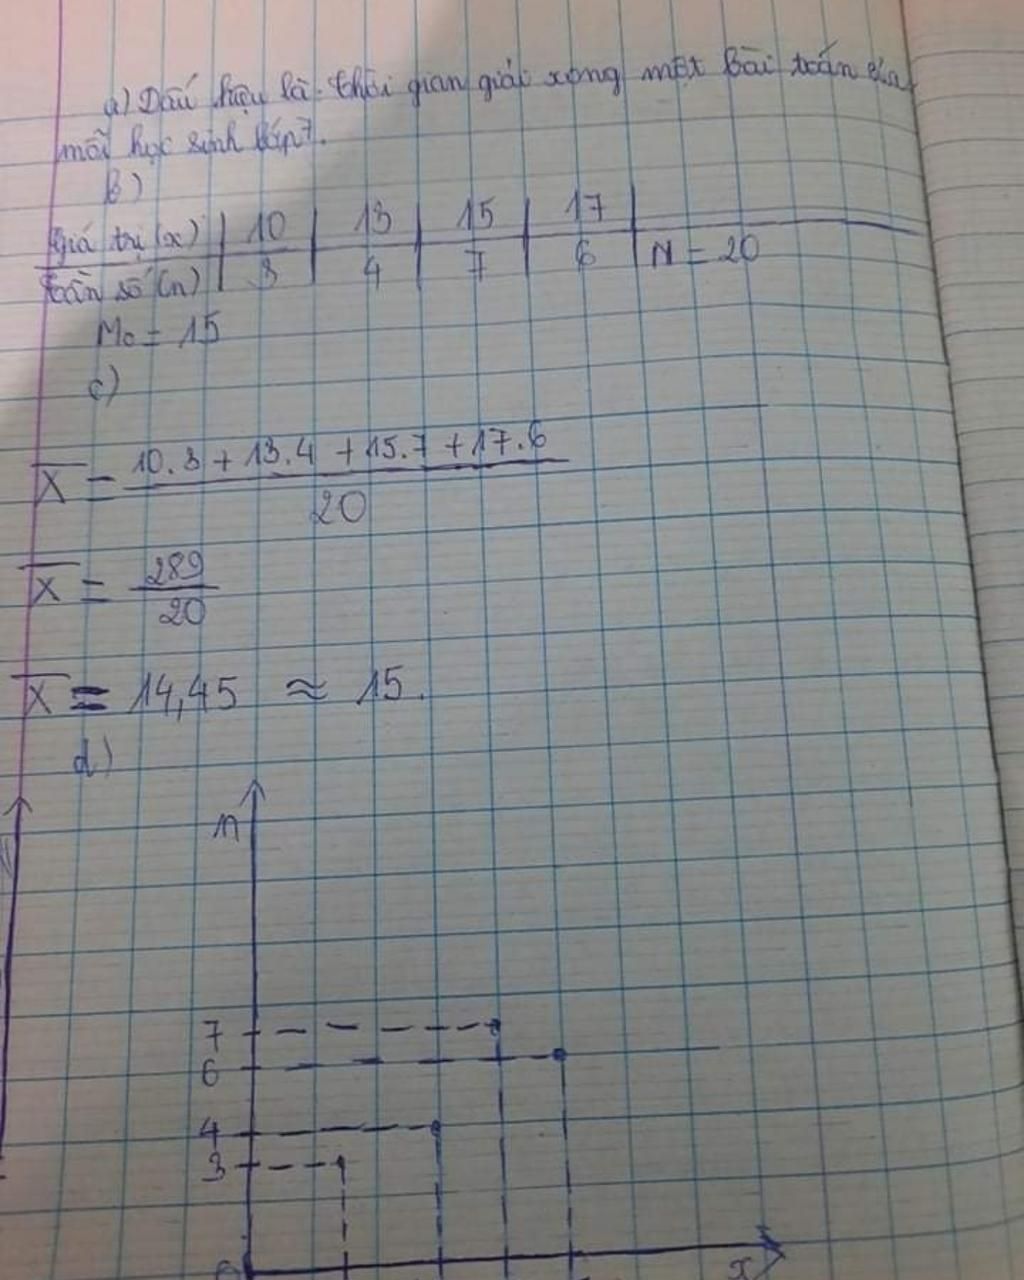 a) Dấu hiệu là: thời gian giải xong một bài toán của
mỗi học sinh lớp 7.
b)
giá trị (x) 10 13 15 17
tần số (n) 3 4 7 6 N = 20
Mo = 15
c)
X = 10.3 + 13.4 + 15.7 + 17.6
20
X = 289
20
X = 14,45 ≈ 15.
d)
n
7
6
4
3
x